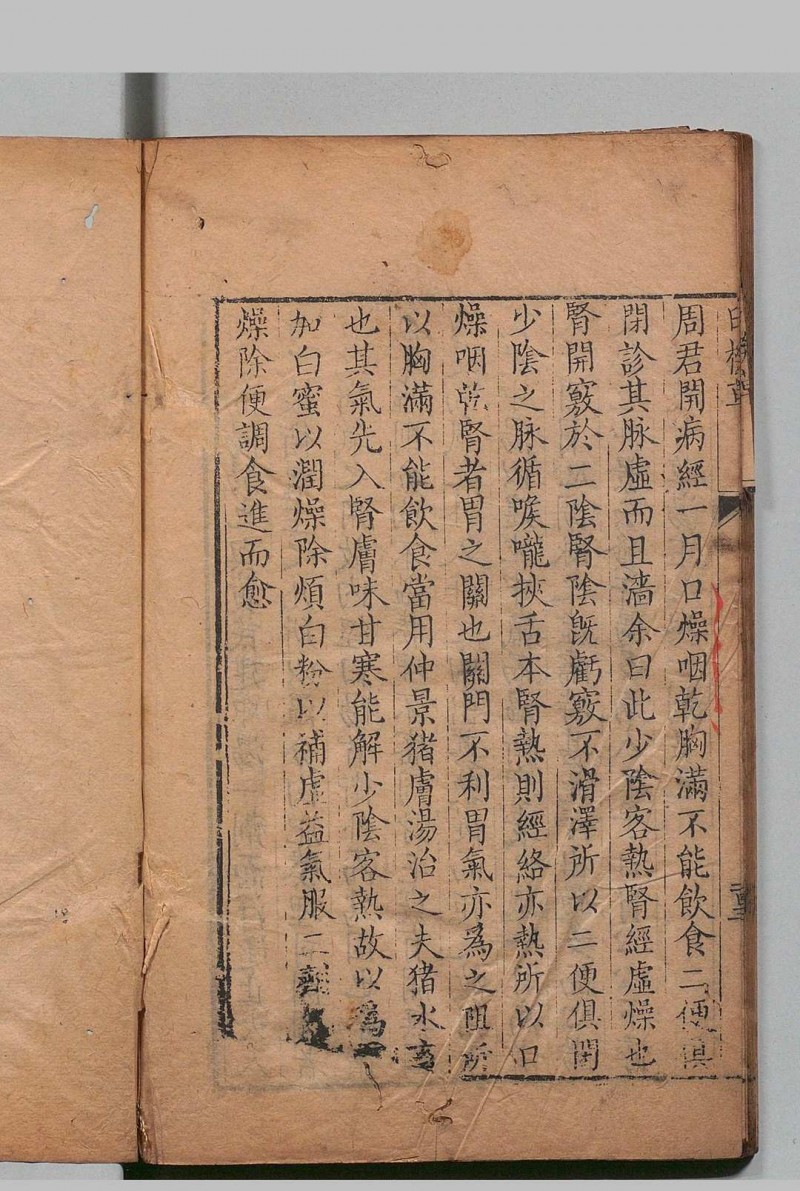 周君開病經一月口燥咽乾胸滿不能飲食二便俱
閉診其脉虛而且濇余曰此少陰客熱腎經虛燥也
腎開竅於二陰腎陰既虧竅不滑澤所以二便俱閉
少陰之脉循喉嚨挾舌本腎熱則經絡亦熱所以口
燥咽乾腎者胃之關也關門不利胃氣亦爲之阻所
以胸滿不能飲食當用仲景猪膚湯治之夫猪水畜
也其氣先入腎膚味甘寒能解少陰客熱故以爲
加白蜜以潤燥除煩白粉以補虛益氣服二劑
燥除便調食進而愈